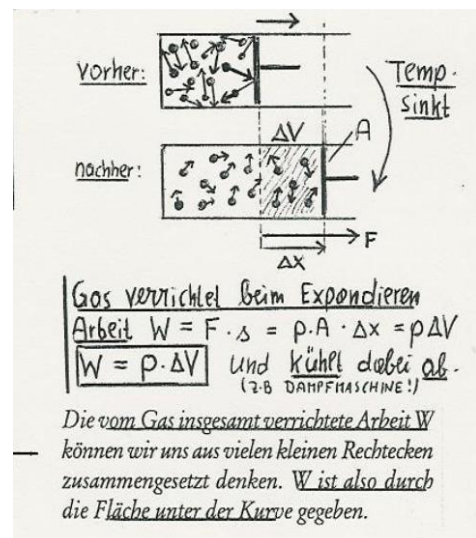 vorher:
Temp.
sinkt
ΔV
A
nachher:
F
Δx
Gas verrichtet beim Expandieren
Arbeit W = F · s = p · A · Δx = p ΔV
W = p · ΔV und kühlt dabei ab.
(z.B DAMPFMASCHINE!)
Die vom Gas insgesamt verrichtete Arbeit W
können wir uns aus vielen kleinen Rechtecken
zusammengesetzt denken. W ist also durch
die Fläche unter der Kurve gegeben.